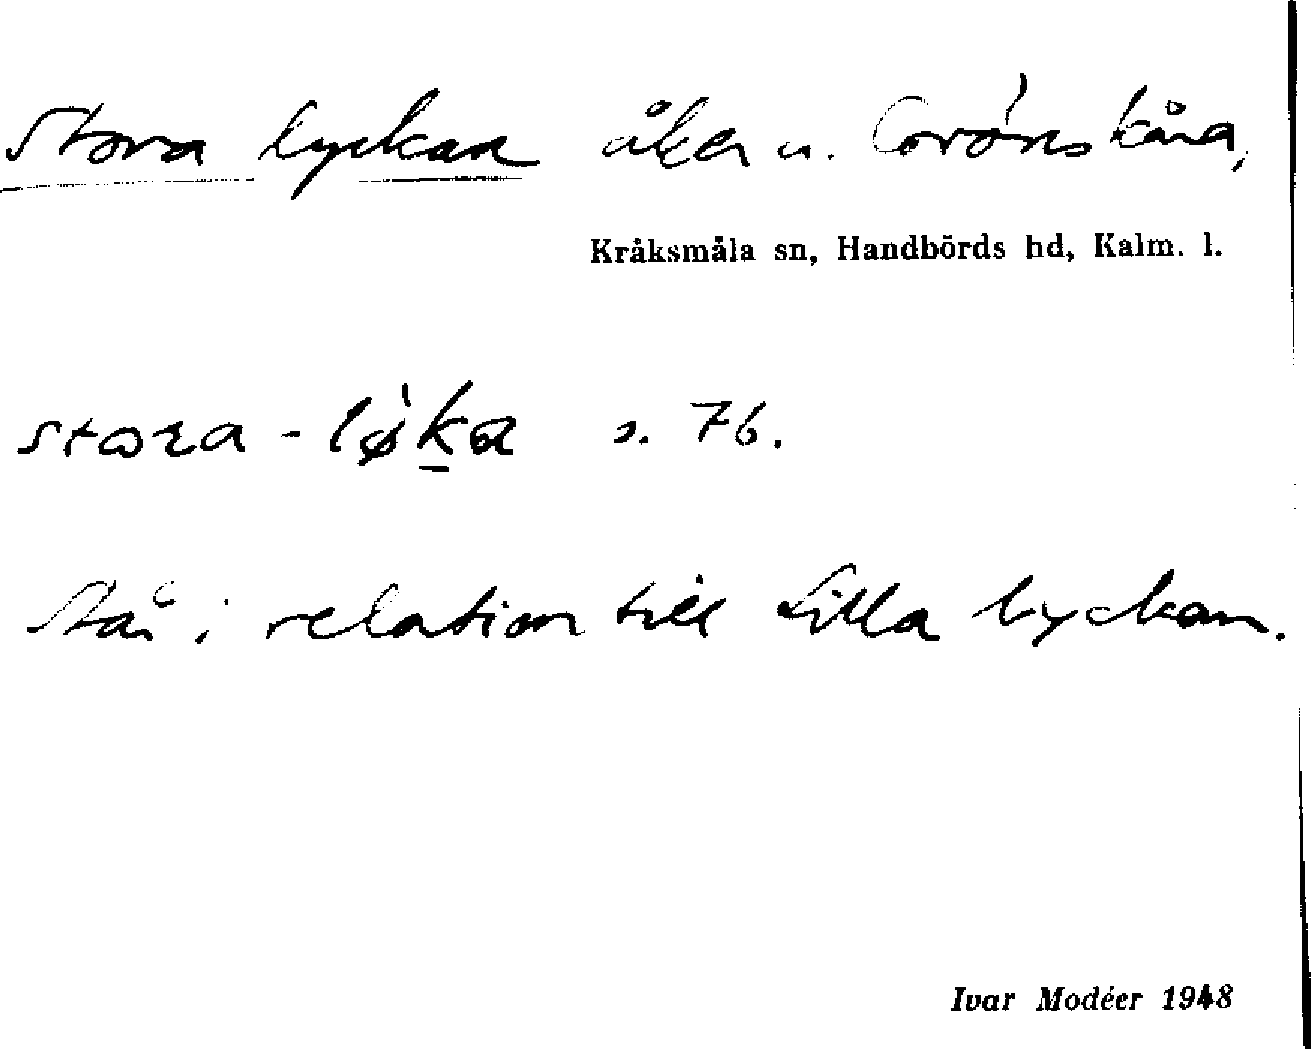 Stora lyckan åker u.
Kråksmåla sn, Handbörds hd, Kalm. l.
stora - lø̀k̠a s. 76.
Står i relation till Lilla lyckan.
Ivar Modéer 1948